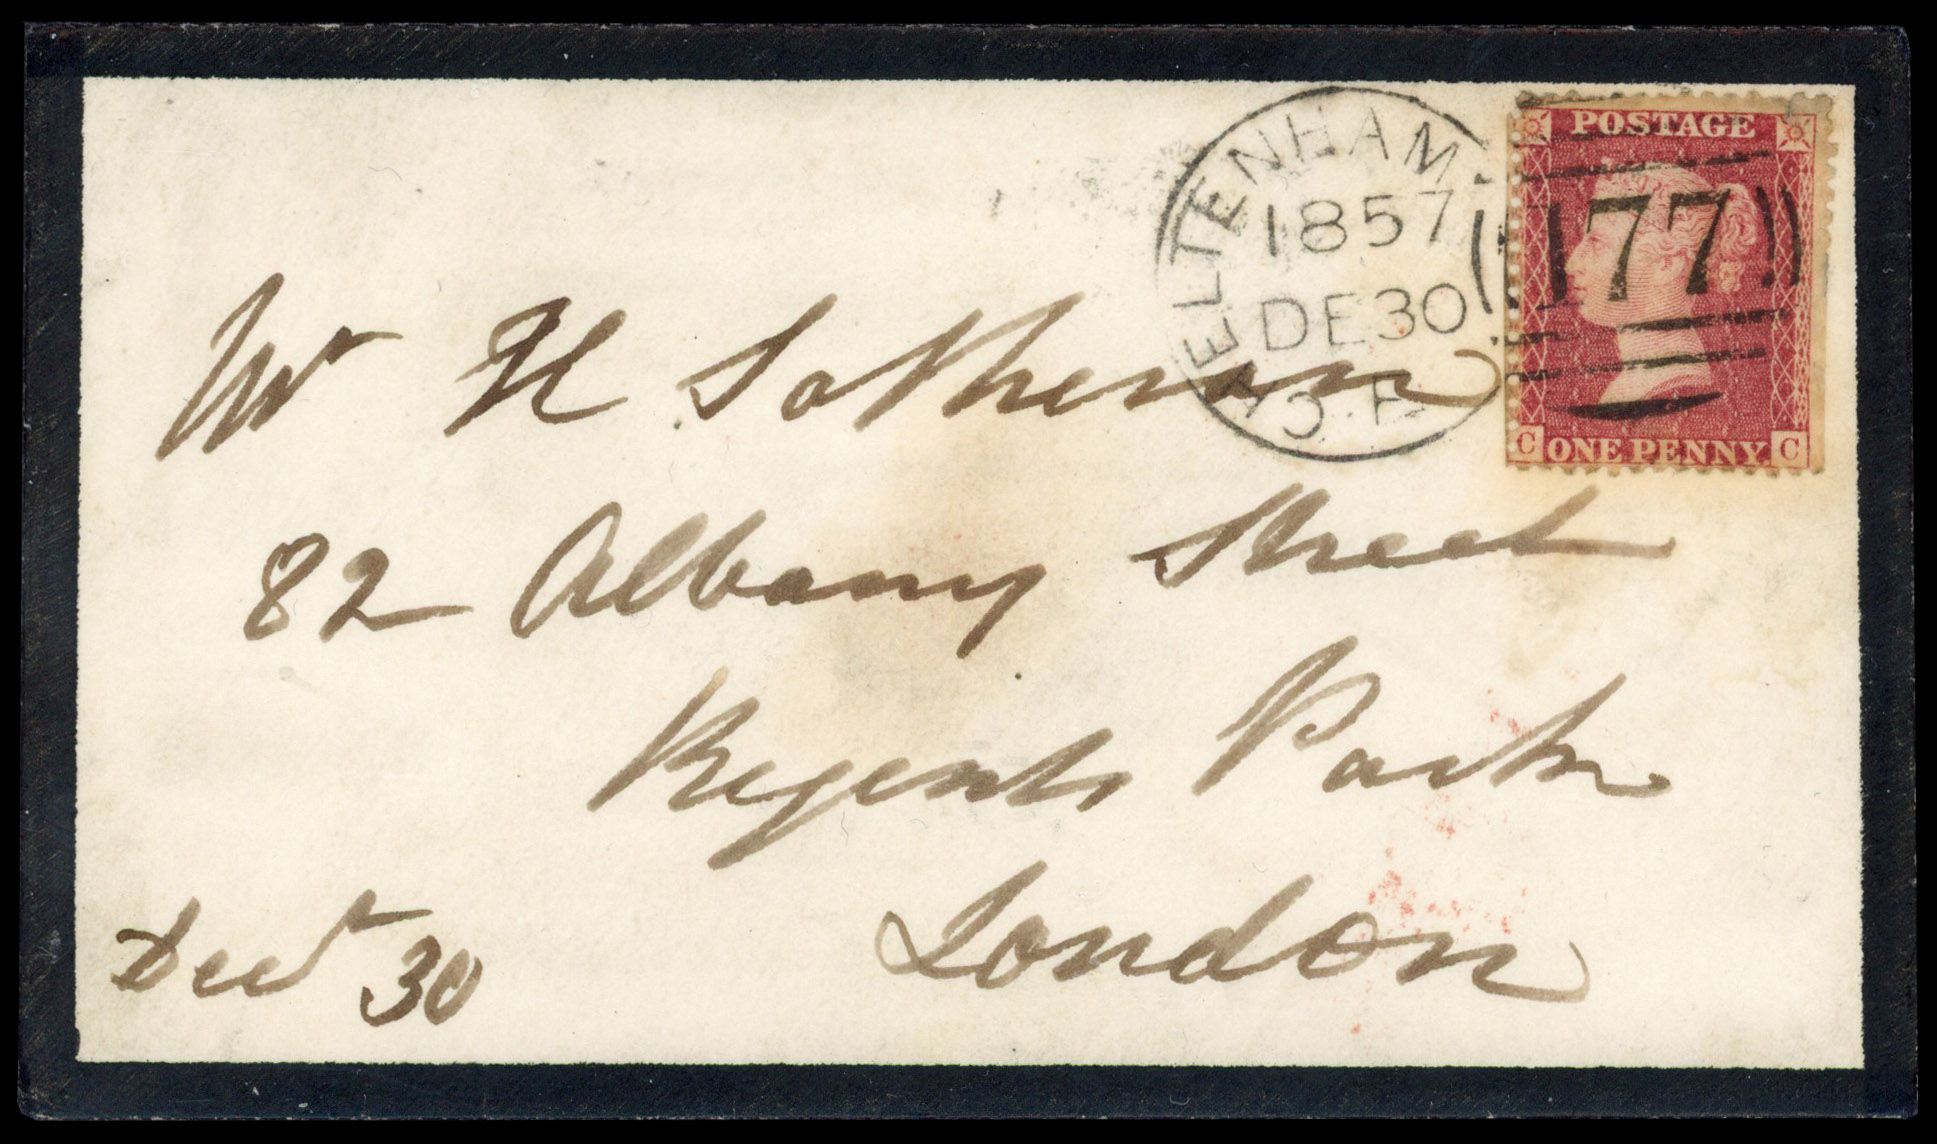 CHELTENHAM
1857
DE30
C·A
POSTAGE
177
C ONE PENNY C
Mr H Sotheran
82 Albany Street
Regents Park
London
Decr 30